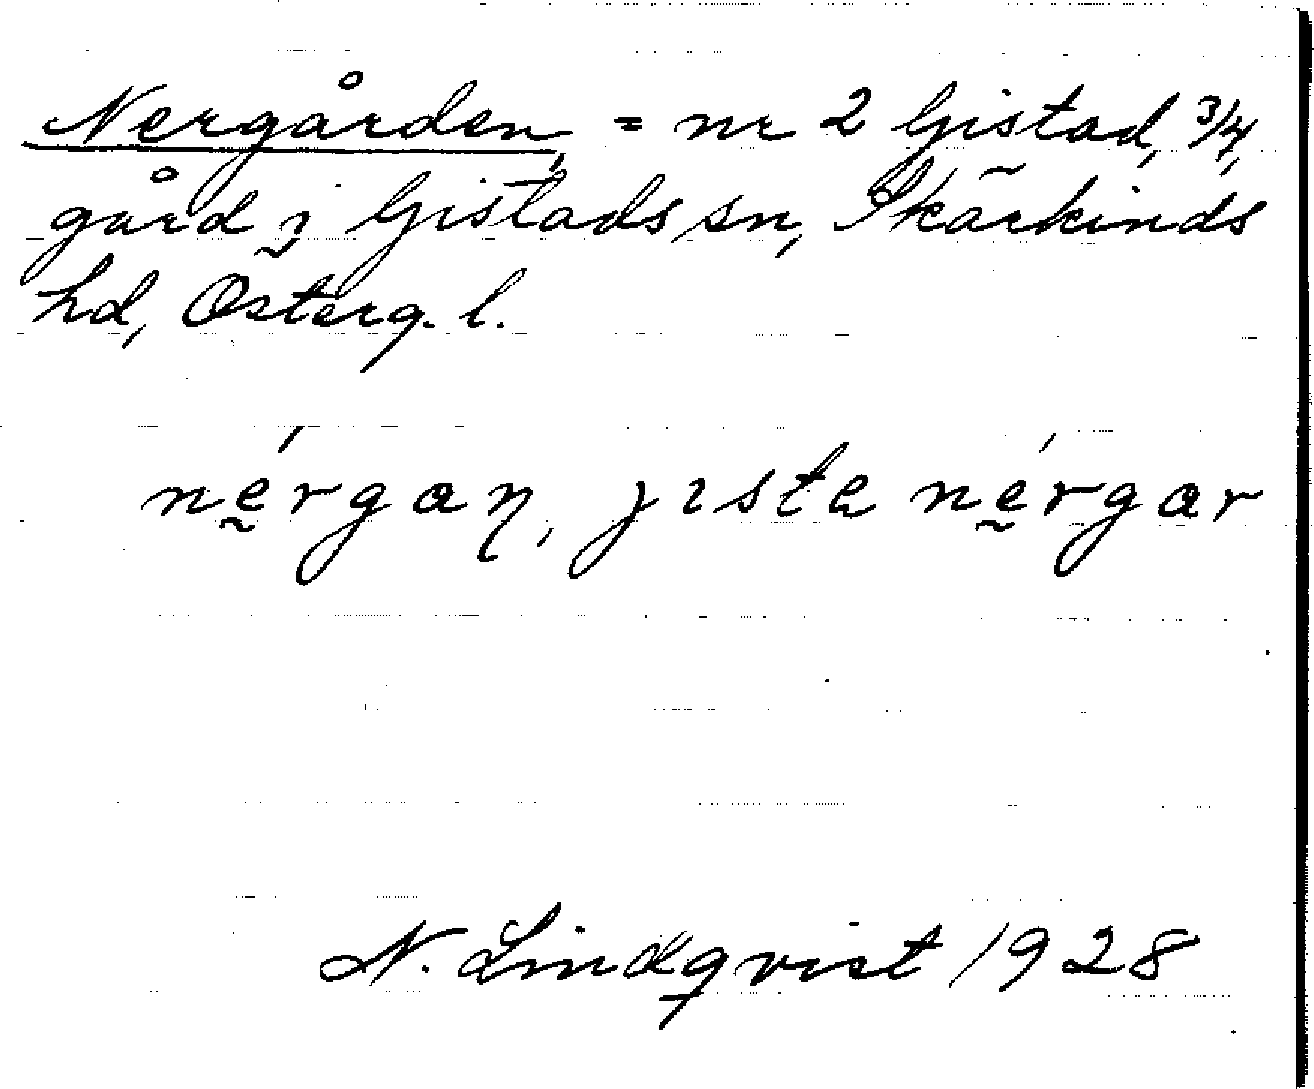 Nergården, = nr 2 Gistad, 3/4,
gård i Gistads sn, Skärkinds
hd, Österg. l.
nérgaɳ, jɩsta nérgar
N. Lindqvist 1928